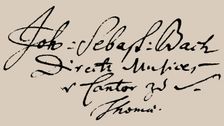 Joh: Sebast: Bach
Direct: Musices
Cantor zu S.
Thomæ.